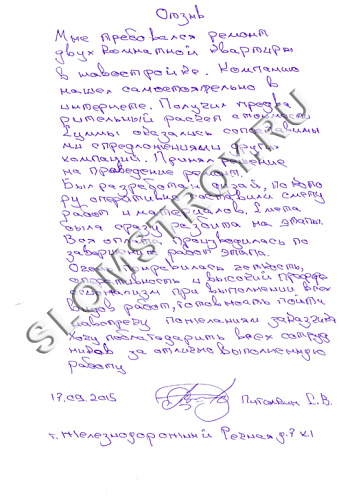 Отзыв
Мне требовался ремонт
двух комнатной квартиры
в новостройке. Компанию
нашел самостоятельно в
интернете. Получил предва
рительный расчет стоимости
Суммы оказались сопоставимы
ми с предложениями других
компаний. Принял решение
на проведение работ.
Был разработан дизайн, по кото
ру оперативно составили смету
работ и материалов. Смета
была сразу разбита на этапы.
Вся оплата производилась по
завершению работ этапа.
понравилась четкость,
оперативность и высокий профе
ссионализм при выполнении всех
видов работ, готовность пойти
навстречу пожеланиям заказчика
Хочу поблагодарить всех сотруд
ников за отлично выполненную
работу
17.09.2015 С.В.
г. Железнодорожный Речная д.7 к.1
SLOMSTROM.RU